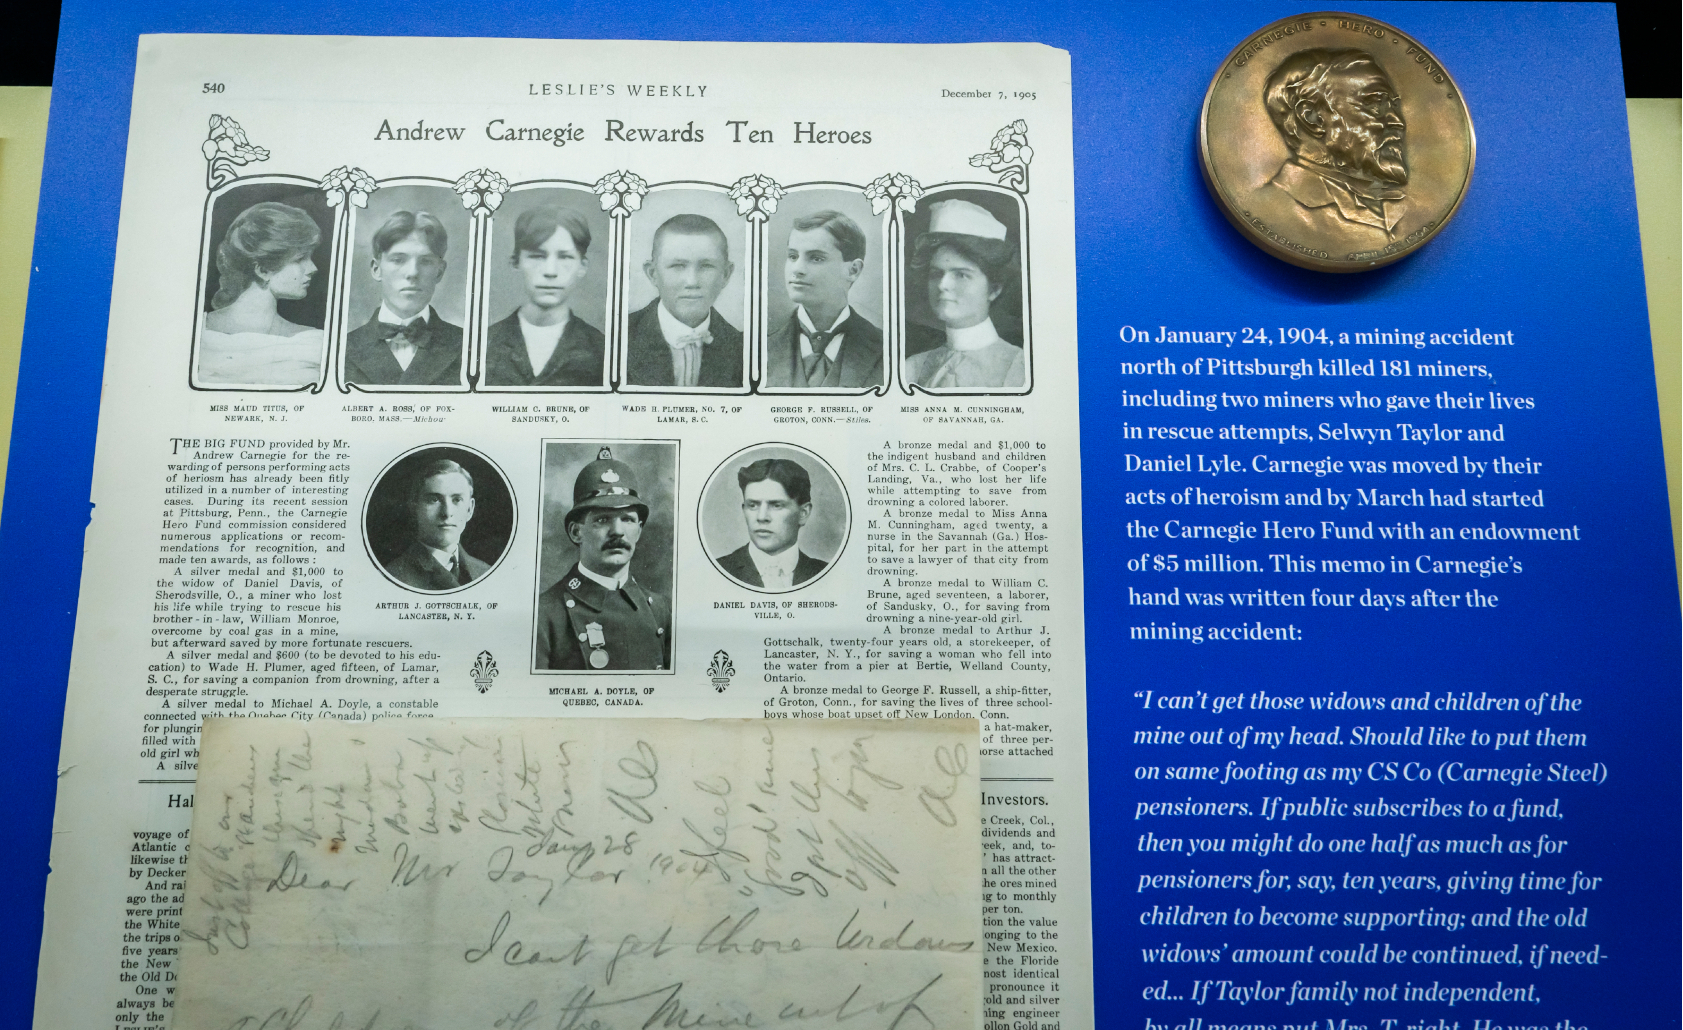 540
LESLIE'S WEEKLY
December 7, 1905
Andrew Carnegie Rewards Ten Heroes
MISS MAUD TITUS, OF
NEWARK, N. J.
ALBERT A. ROSS, OF FOX-
BORO, MASS.—Michou
WILLIAM C. BRUNE, OF
SANDUSKY, O.
WADE H. PLUMER, NO. 7, OF
LAMAR, S. C.
GEORGE F. RUSSELL, OF
GROTON, CONN.—Stiles.
MISS ANNA M. CUNNINGHAM,
OF SAVANNAH, GA.
THE BIG FUND provided by Mr.
Andrew Carnegie for the re-
warding of persons performing acts
of heriosm has already been fitly
utilized in a number of interesting
cases. During its recent session
at Pittsburg, Penn., the Carnegie
Hero Fund commission considered
numerous applications or recom-
mendations for recognition, and
made ten awards, as follows:
A silver medal and $1,000 to
the widow of Daniel Davis, of
Sherodsville, O., a miner who lost
his life while trying to rescue his
brother-in-law, William Monroe,
overcome by coal gas in a mine,
but afterward saved by more fortunate rescuers.
A silver medal and $600 (to be devoted to his edu-
cation) to Wade H. Plumer, aged fifteen, of Lamar,
S. C., for saving a companion from drowning, after a
desperate struggle.
A silver medal to Michael A. Doyle, a constable
connected with the Quebec City (Canada) police force,
for plungin
filled with
old girl wh
A silve
ARTHUR J. GOTTSCHALK, OF
LANCASTER, N. Y.
MICHAEL A. DOYLE, OF
QUEBEC, CANADA.
DANIEL DAVIS, OF SHERODS-
VILLE, O.
A bronze medal and $1,000 to
the indigent husband and children
of Mrs. C. L. Crabbe, of Cooper's
Landing, Va., who lost her life
while attempting to save from
drowning a colored laborer.
A bronze medal to Miss Anna
M. Cunningham, aged twenty, a
nurse in the Savannah (Ga.) Hos-
pital, for her part in the attempt
to save a lawyer of that city from
drowning.
A bronze medal to William C.
Brune, aged seventeen, a laborer,
of Sandusky, O., for saving from
drowning a nine-year-old girl.
A bronze medal to Arthur J.
Gottschalk, twenty-four years old, a storekeeper, of
Lancaster, N. Y., for saving a woman who fell into
the water from a pier at Bertie, Welland County,
Ontario.
A bronze medal to George F. Russell, a ship-fitter,
of Groton, Conn., for saving the lives of three school-
boys whose boat upset off New London, Conn.
a hat-maker,
of three per-
orse attached
Hal
Investors.
voyage of
Atlantic c
likewise th
by Decker
And rai
ago the ad
were print
the White
the trips o
five years
the New
the Old De
One w
always be
only the
e Creek, Col.,
dividends and
eek, and, to-
' has attract-
n all the other
he ores mined
ng to monthly
per ton.
tion the value
onging to the
New Mexico.
e the Floride
nost identical
pronounce it
old and silver
ning engineer
ollon Gold and
Jany 28
1904
Dear Mr Taylor
I cant get those Widows
of the Mine out of
CARNEGIE · HERO · FUND
ESTABLISHED APRIL 15, 1904
On January 24, 1904, a mining accident
north of Pittsburgh killed 181 miners,
including two miners who gave their lives
in rescue attempts, Selwyn Taylor and
Daniel Lyle. Carnegie was moved by their
acts of heroism and by March had started
the Carnegie Hero Fund with an endowment
of $5 million. This memo in Carnegie's
hand was written four days after the
mining accident:
“I can't get those widows and children of the
mine out of my head. Should like to put them
on same footing as my CS Co (Carnegie Steel)
pensioners. If public subscribes to a fund,
then you might do one half as much as for
pensioners for, say, ten years, giving time for
children to become supporting; and the old
widows' amount could be continued, if need-
ed... If Taylor family not independent,
by all means put Mrs. T. right. He was the